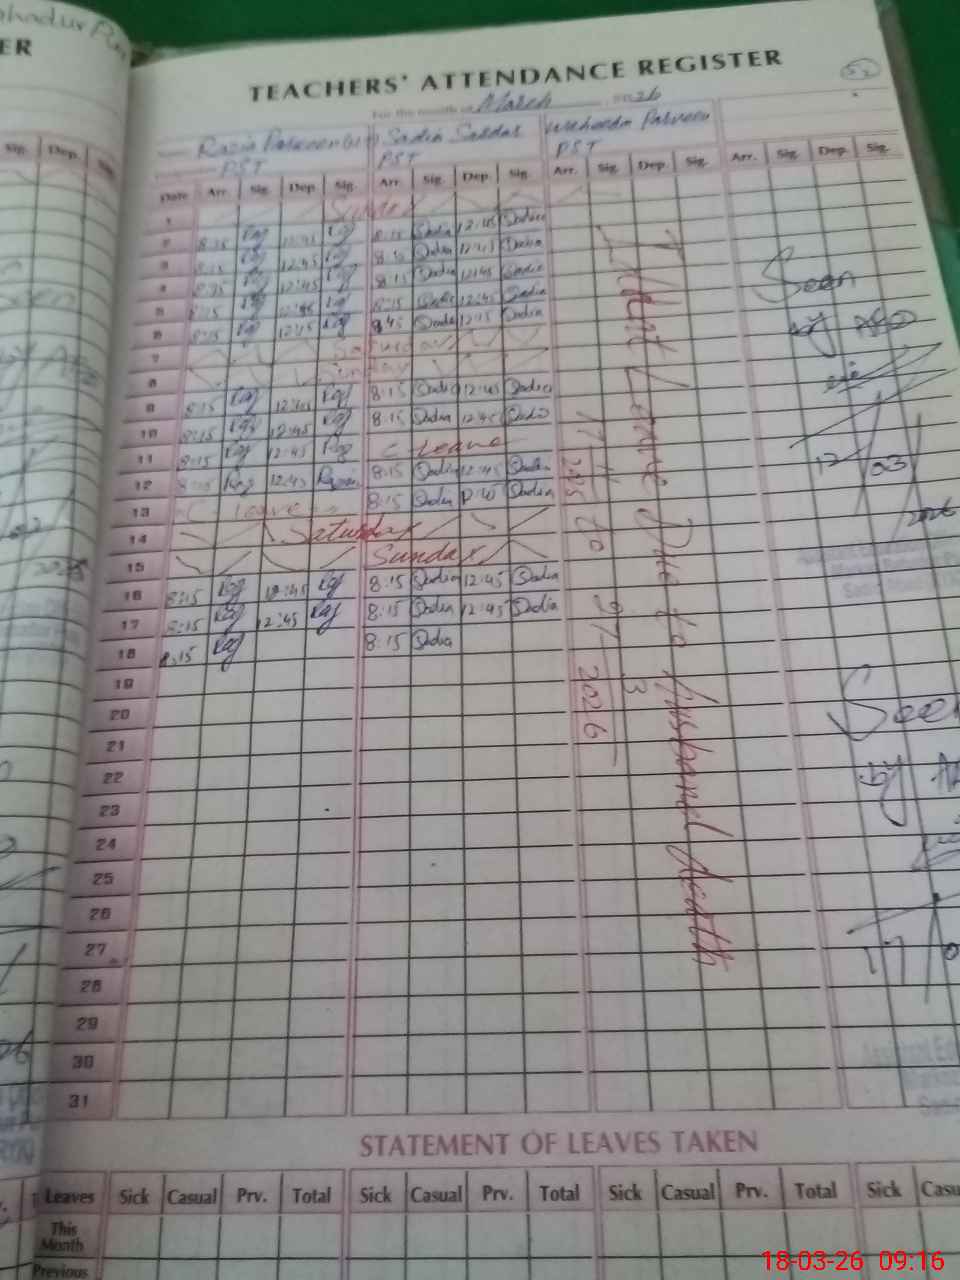 TEACHERS' ATTENDANCE REGISTER
For the month of March 2026
52
Razia Parveen Sadia Safdar Waheeda Parveen
PST PST PST
Date Arr. Sig. Dep. Sig. Arr. Sig. Dep. Sig. Arr. Sig. Dep. Sig. Arr. Sig. Dep. Sig.
1 Sunday
2 8:15 Raz 12:45 Raz 8:15 Sadia 12:45 Sadia
3 8:15 Raz 12:45 Raz 8:15 Sadia 12:45 Sadia
4 8:15 Raz 12:45 Raz 8:15 Sadia 12:45 Sadia
5 8:15 Raz 12:45 Raz 8:15 Sadia 12:45 Sadia
6 8:15 Raz 12:15 Raz 8:45 Sadia 12:15 Sadia
7 Saturday
8 Sunday
9 8:15 Raz 12:45 Raz 8:15 Sadia 12:45 Sadia
10 8:15 Raz 12:45 Raz 8:15 Sadia 12:45 Sadia
11 8:15 Raz 12:45 Raz C-Leave
12 8:15 Raz 12:45 Razia 8:15 Sadia 12:45 Sadia
13 C-Leave 8:15 Sadia Sadia
14 Saturday
15 Sunday
16 8:15 Raz 12:45 Raz 8:15 Sadia 12:45 Sadia
17 8:15 Raz 12:45 Raz 8:15 Sadia 12:45 Sadia
18 8:15 Raz 8:15 Sadia
19
20
21
22
23
24
25
26
27
28
29
30
31
Leave Due to Husband death
17 11 2025 to 27 3 2026
Seen
by AEO
12/03/2026
Seen
by
17/0
STATEMENT OF LEAVES TAKEN
Leaves Sick Casual Prv. Total Sick Casual Prv. Total Sick Casual Prv. Total Sick
This
Month
Previous
ER
Sig. Dep.
18-03-26 09:16